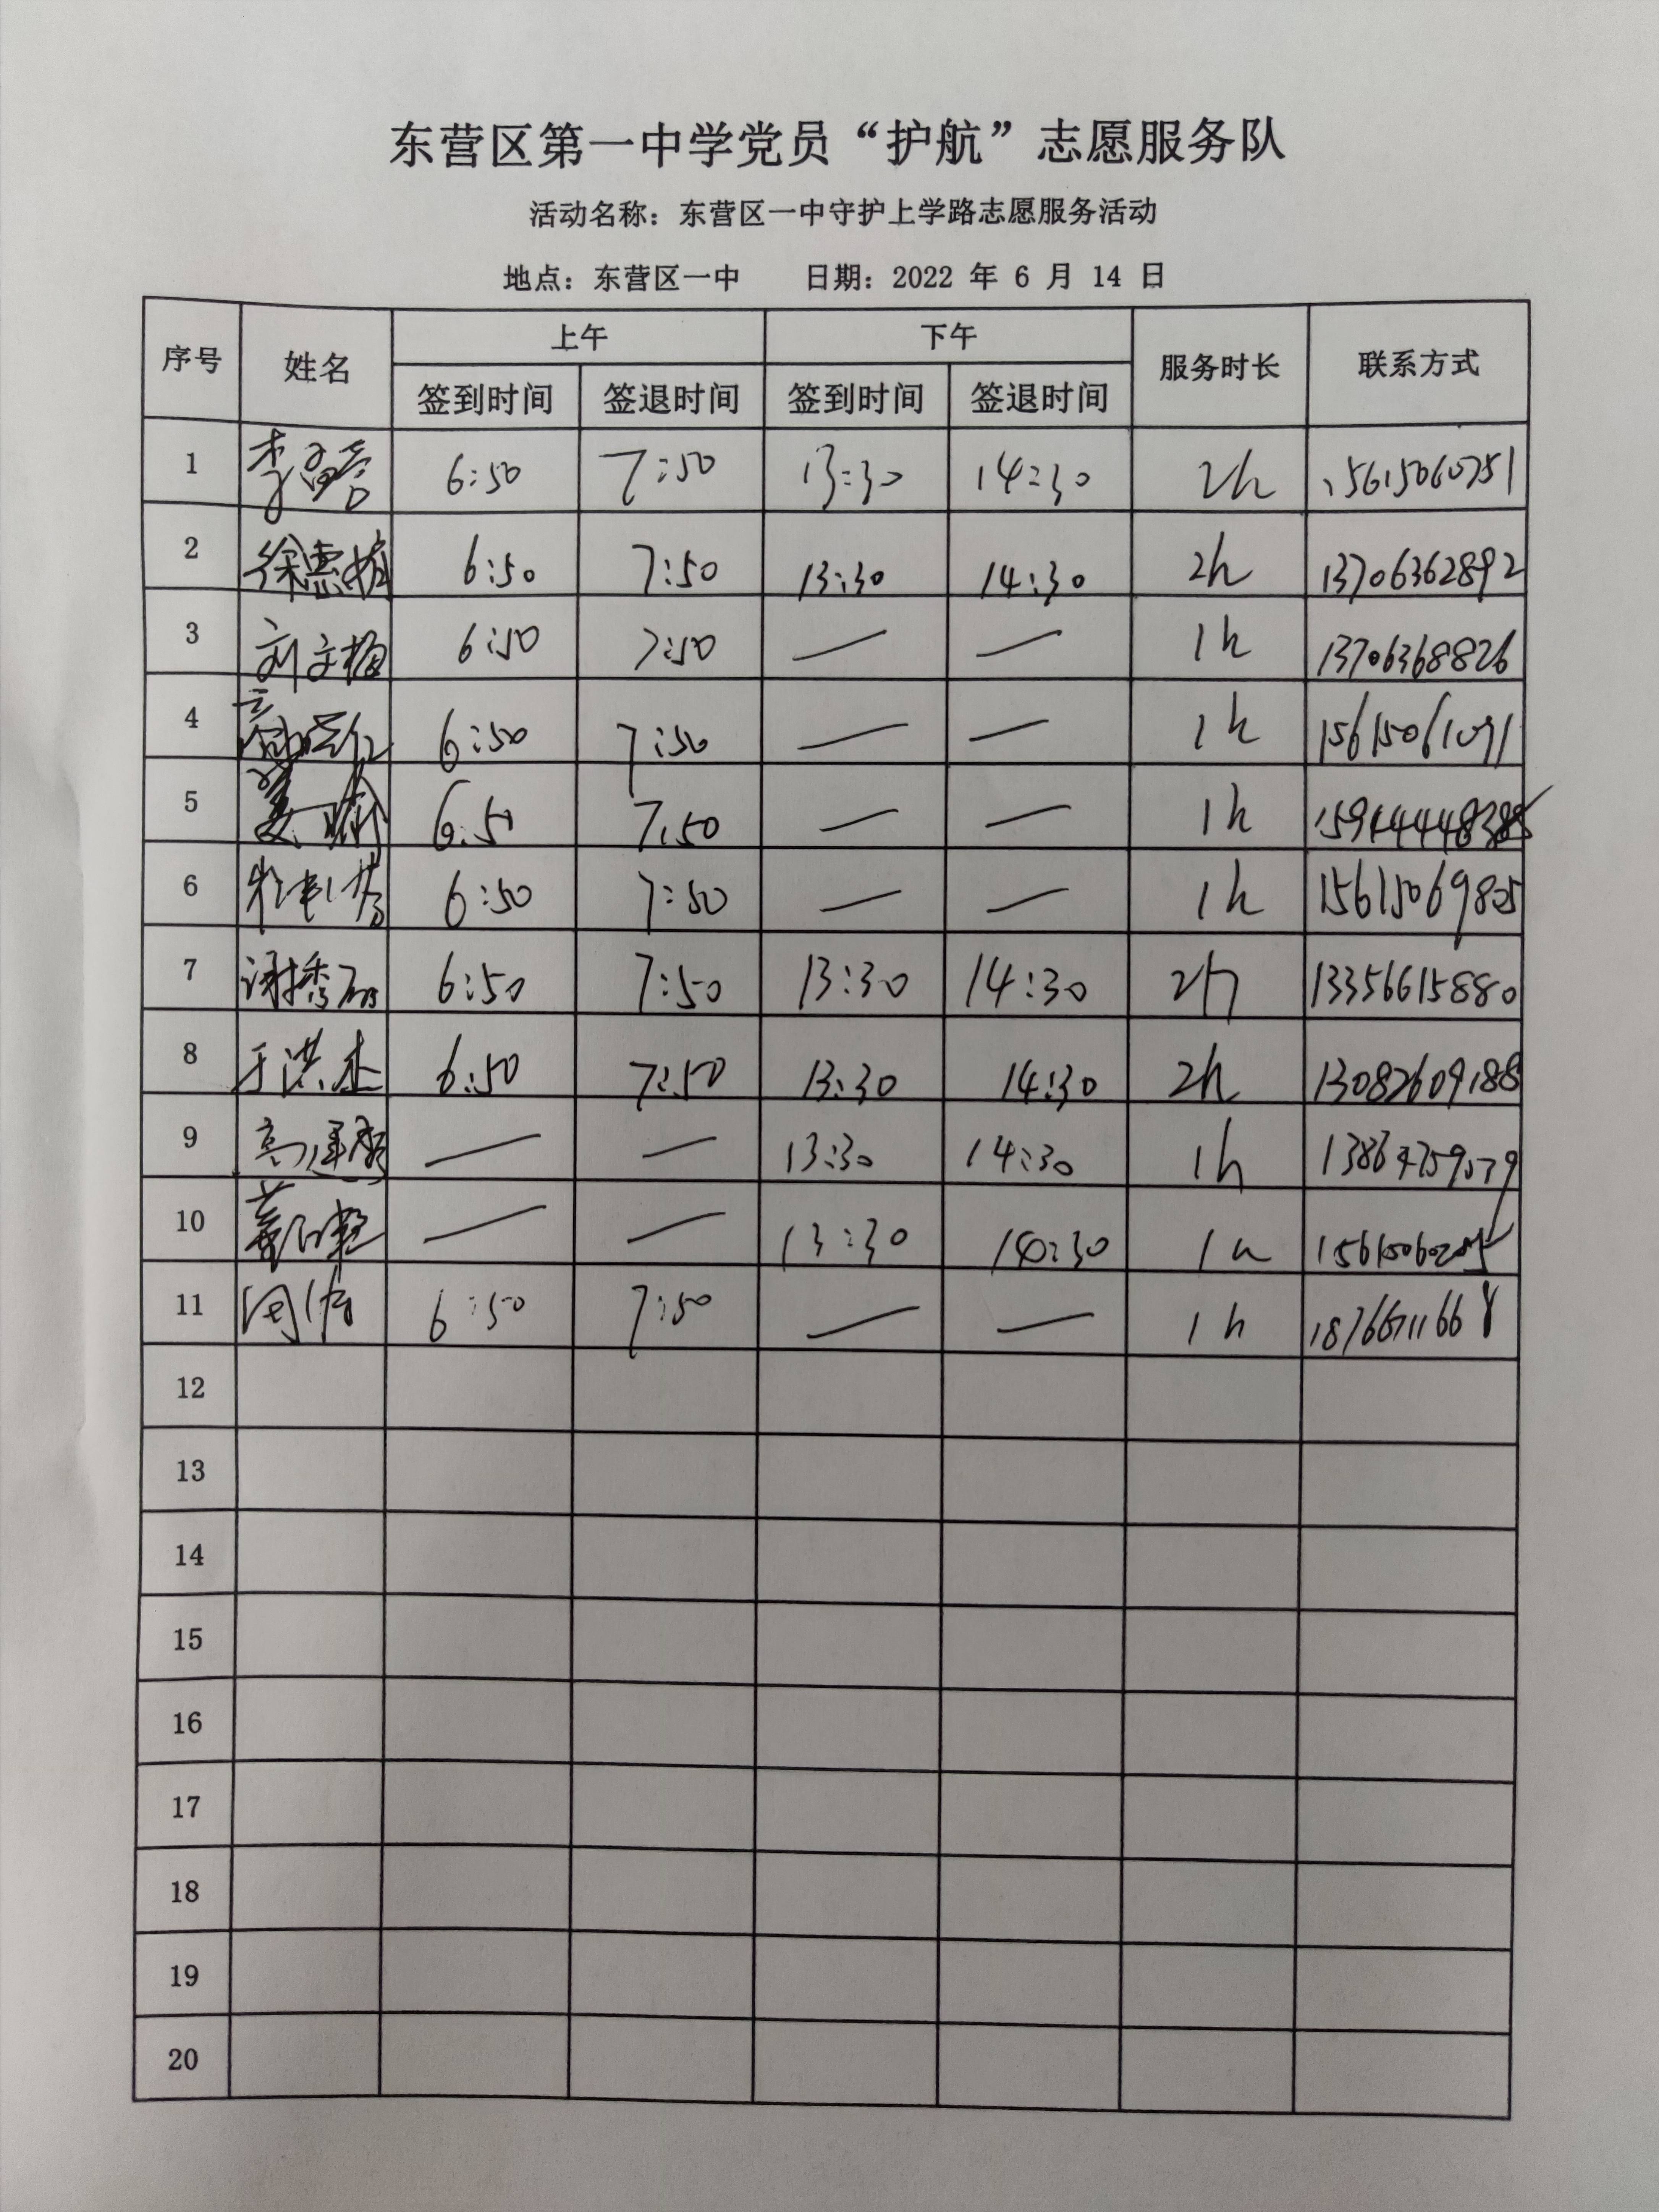 东营区第一中学党员“护航”志愿服务队
活动名称：东营区一中守护上学路志愿服务活动
地点：东营区一中 日期：2022 年 6 月 14 日
序号 姓名 上午 下午 服务时长 联系方式
签到时间 签退时间 签到时间 签退时间
1 6:50 7:50 13:30 14:30 2h 15615060751
2 徐惠梅 6:50 7:50 13:30 14:30 2h 13706362892
3 刘文梅 6:50 7:50 — — 1h 13706368826
4 6:50 7:50 — — 1h 15615061091
5 6:50 7:50 — — 1h
6 6:50 7:50 — — 1h 15615069825
7 谢秀丽 6:50 7:50 13:30 14:30 2h 13356615880
8 于洪杰 6:50 7:50 13:30 14:30 2h 13082609188
9 — — 13:30 14:30 1h
10 — — 13:30 14:30 1h
11 周倩 6:50 7:50 — — 1h
12
13
14
15
16
17
18
19
20